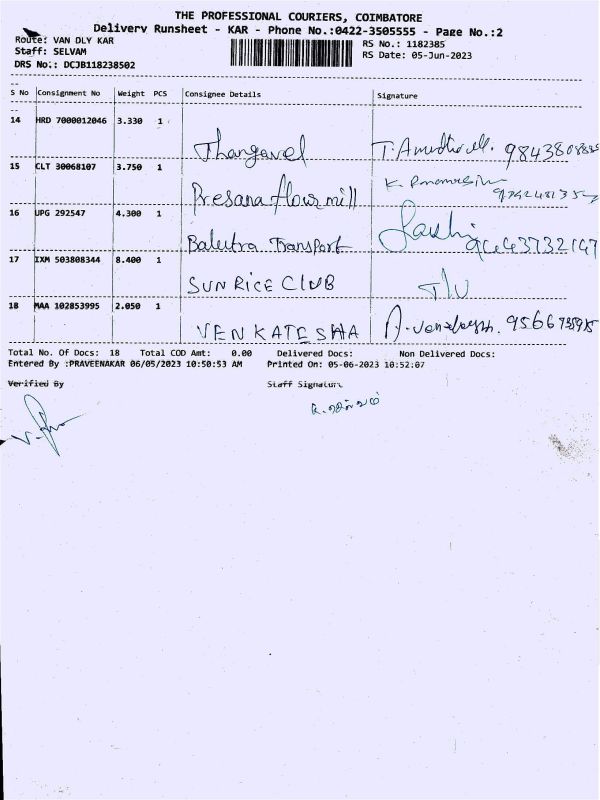 THE PROFESSIONAL COURIERS, COIMBATORE
Delivery Runsheet - KAR - Phone No.:0422-3505555 - Page No.:2
Route: VAN DLY KAR RS No.: 1182385
Staff: SELVAM RS Date: 05-Jun-2023
DRS No.: DCJB118238502
S No Consignment No Weight PCS Consignee Details Signature
14 HRD 7000012046 3.330 1
Thangavel
15 CLT 30068107 3.750 1
Presana flour mill
16 UPG 292547 4.300 1
Transport
17 IXM 503808344 8.400 1
SUN RICE CLUB
18 MAA 102853995 2.050 1
VENKATESHA
Total No. Of Docs: 18 Total COD Amt: 0.00 Delivered Docs: Non Delivered Docs:
Entered By :PRAVEENAKAR 06/05/2023 10:50:53 AM Printed On: 05-06-2023 10:52:07
Verified By Staff Signature